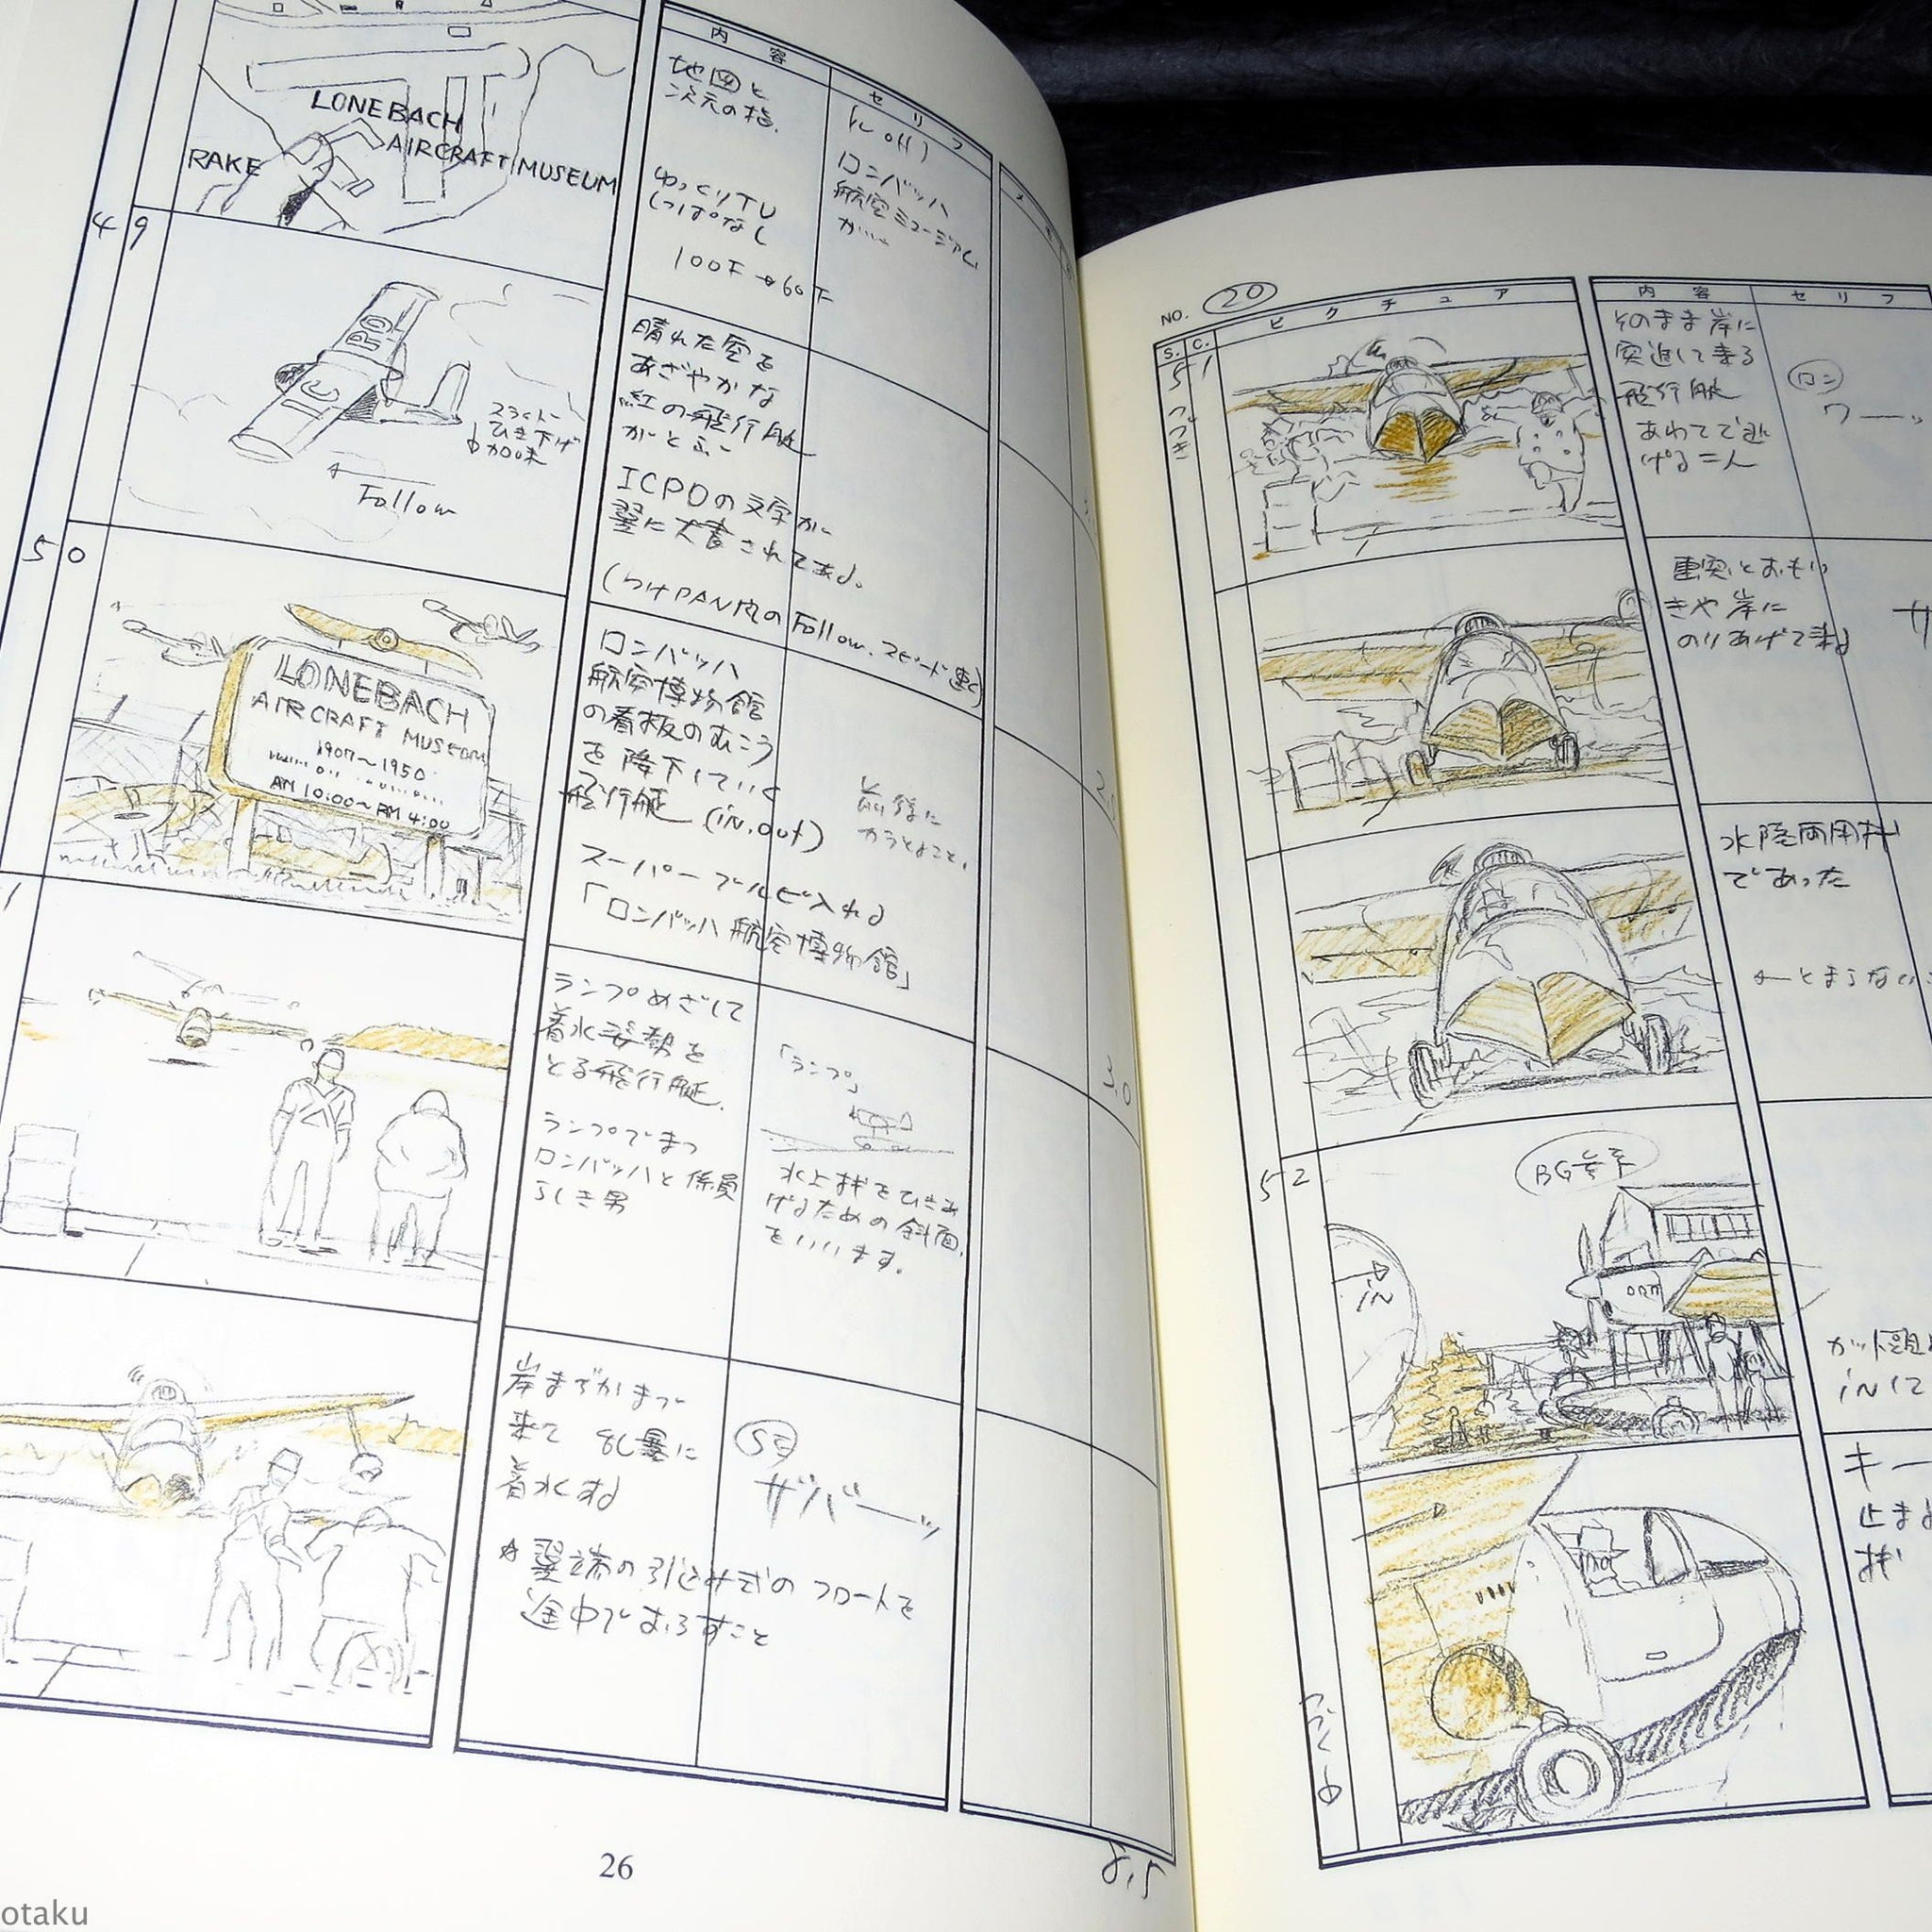 内容
セリフ
LONEBACH
AIRCRAFT MUSEUM
RAKE
地図と
次元の指.
ゆっくりTU
しっぱなし
100F→60F
ロンバッハ
航空ミュージアム
か……
49
スライド
ひき下げ
中加味
Follow
晴れた空を
あざやかな
紅の飛行艇
がとぶ
ICPOの文字が
翼に大書されてある。
(つけPAN内のFollow.スピード速く)
50
LONEBACH
AIRCRAFT MUSEUM
1907〜1950
AM 10:00〜PM 4:00
ロンバッハ
航空博物館
の看板のむこう
を降下していく
飛行艇 (in.out)
スーパーダブルで入れる
「ロンバッハ航空博物館」
ランプめざして
着水姿勢を
とる飛行艇.
ランプでまつ
ロンバッハと係員
らしき男
「ランプ」
水上機をひきあ
げるための斜面.
をいいます。
岸まぢかまで
来て 乱暴に
着水する
SE
ザバーッ
翼端の引込み式のフロートを
途中でおろすこと
26
8.5
NO. 20
S. C. ピクチュア
内容
セリフ
51
つづき
そのまま岸に
突進して来る
飛行艇
あわてて逃
げる二人
ロン
ワーッ
激突とおもい
きや岸に
のりあげて来る
水陸両用機
であった
←とまらない
52
BG兼用
iN
カット頭
iNして
キー
止まる
機
つづく
otaku